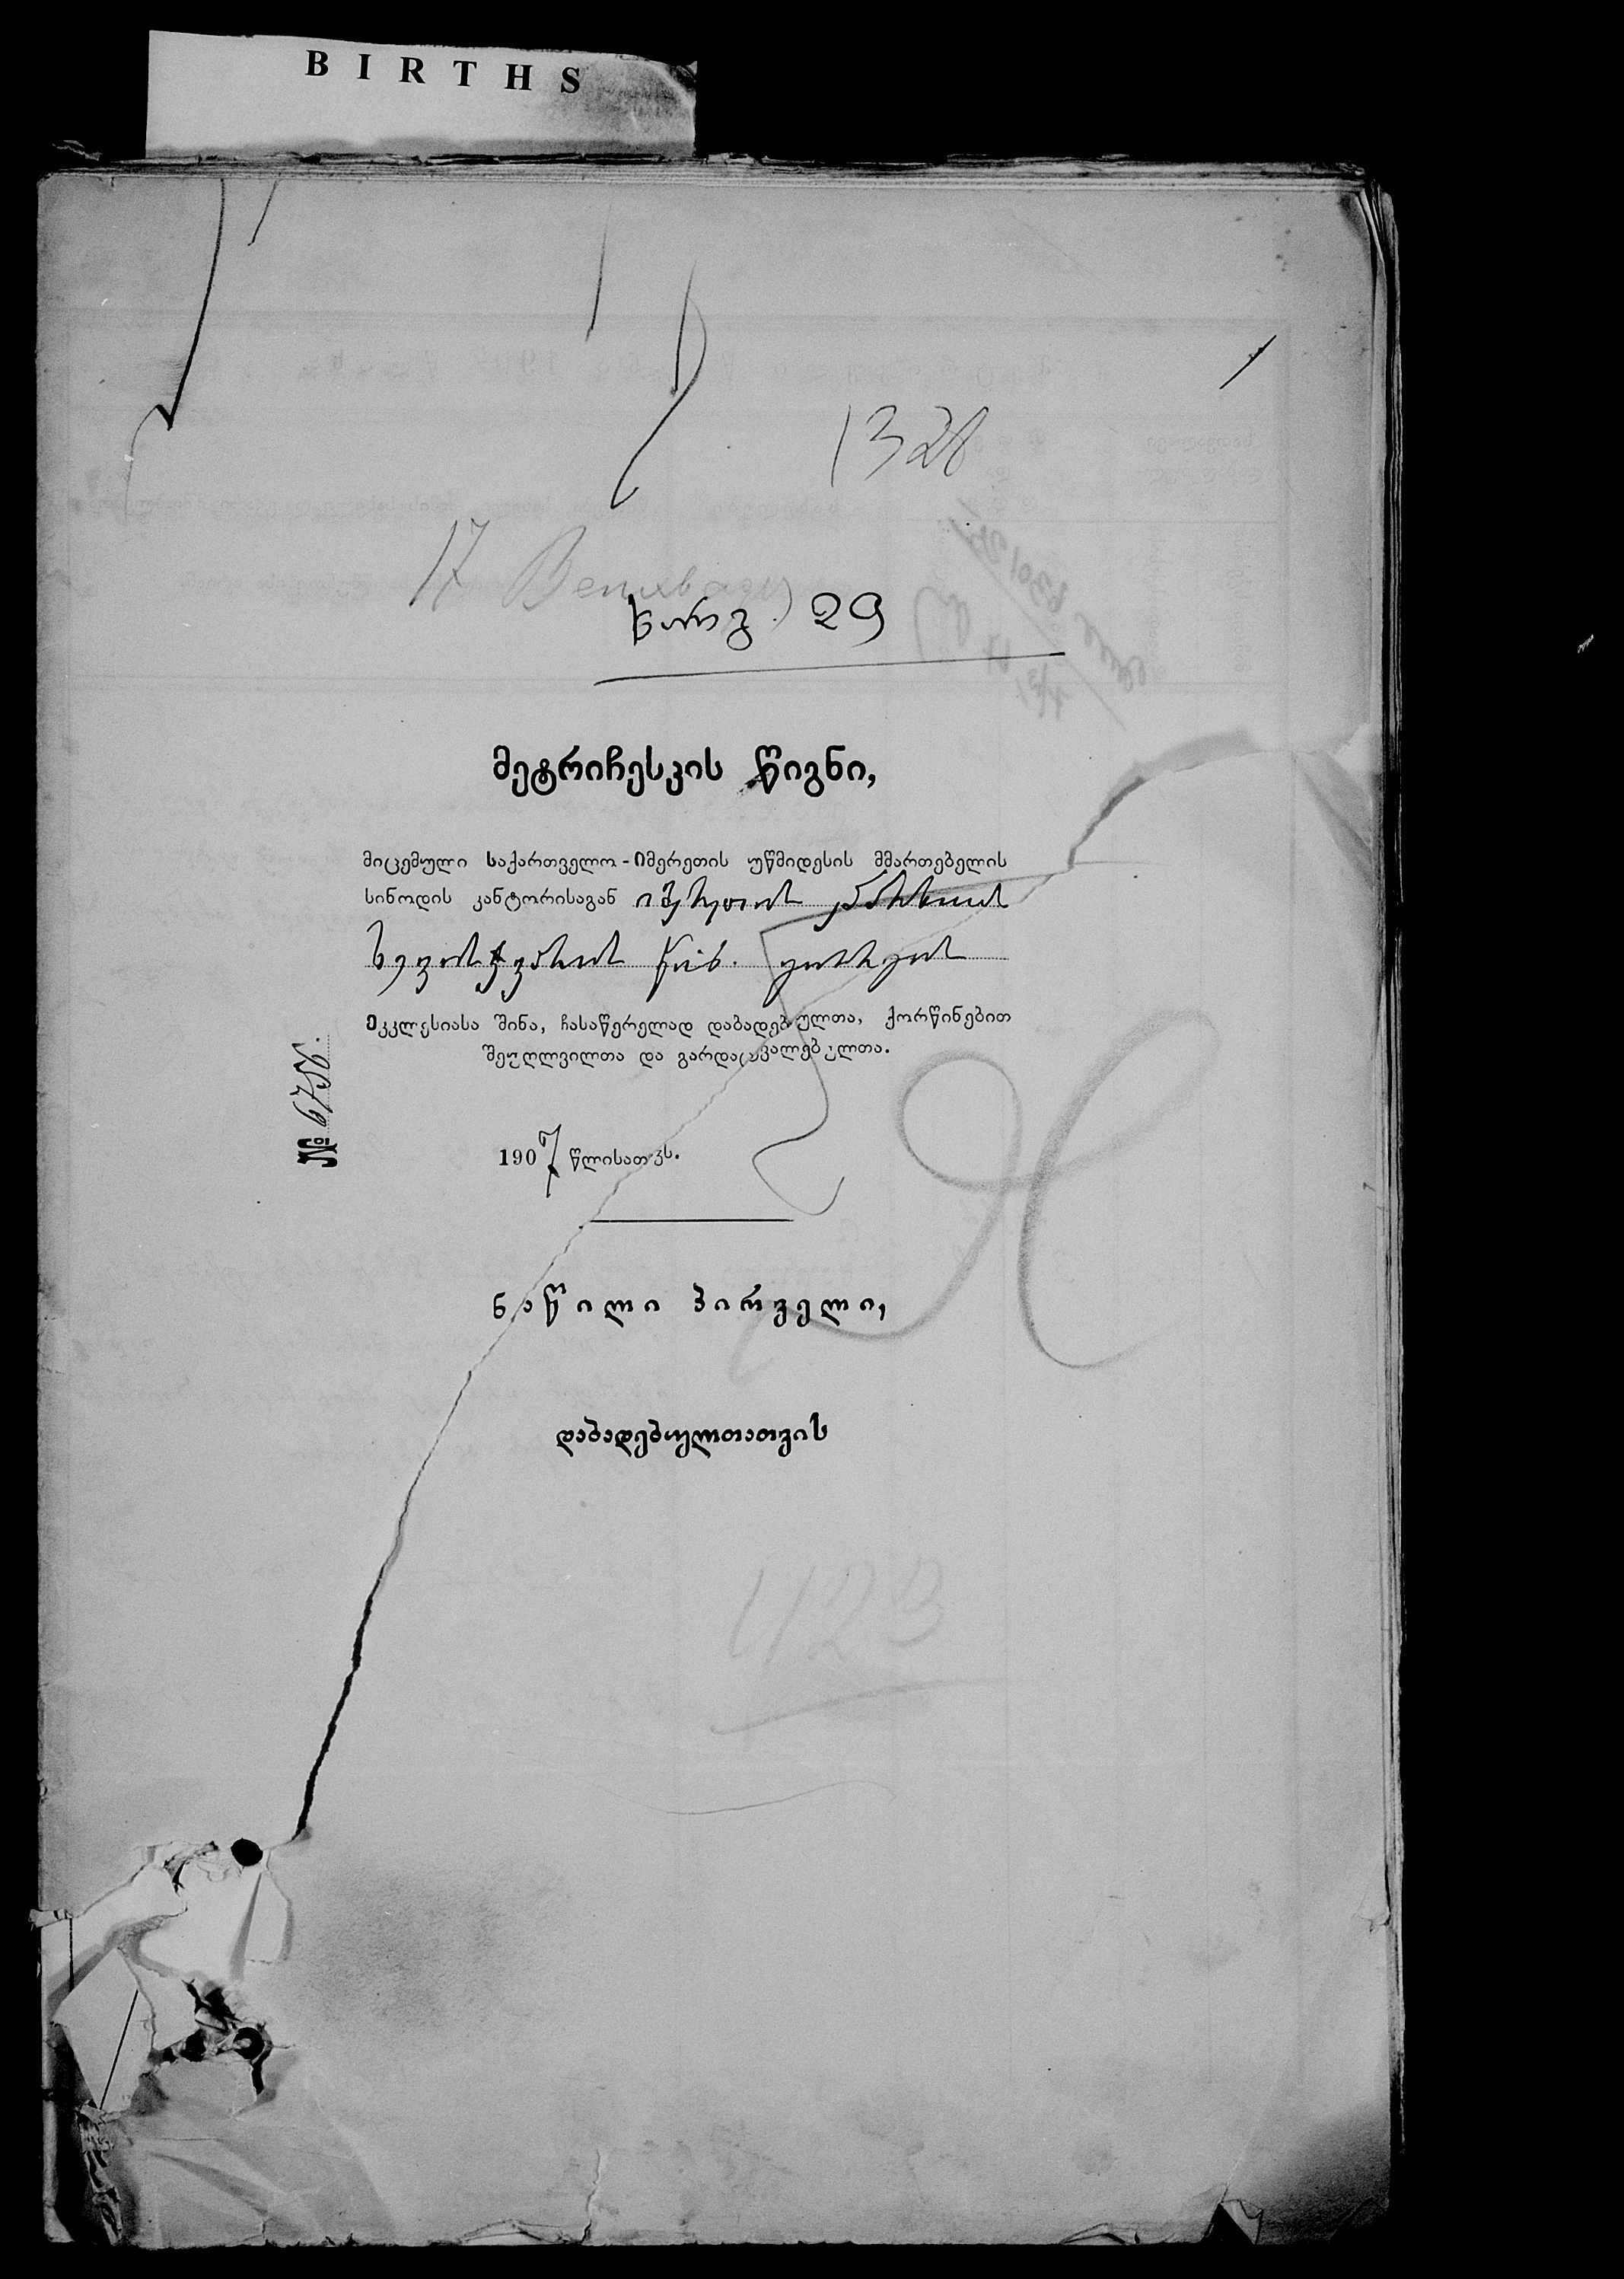 BIRTHS
1328
17
ხარგ. 29
მეტრიჩესკის წიგნი,
მიცემული საქართველო-იმერეთის უწმიდესის მმართებელის
სინოდის კანტორისაგან იმერეთის
წმ. გიორგის
ეკკლესიასა შინა, ჩასაწერელად დაბადებულთა, ქორწინებით
შეუღლვილთა და გარდაცვალებულთა.
№ 6756.
1907 წლისათვს.
ნაწილი პირველი,
დაბადებულთათვის
423